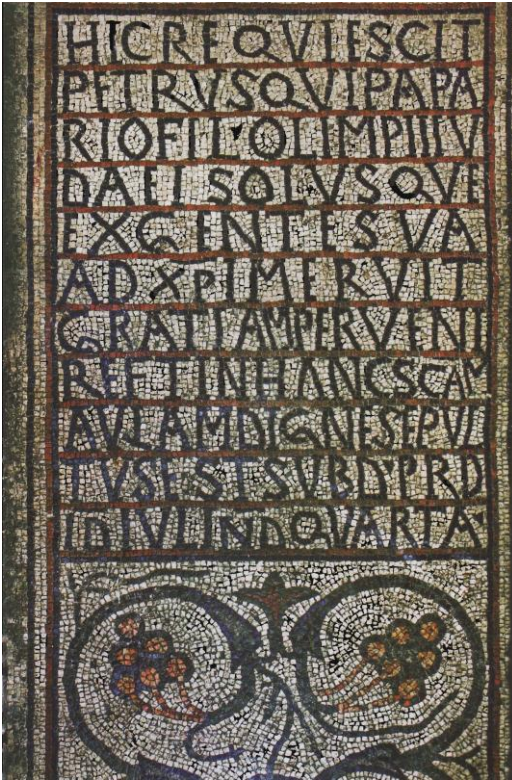 HICREQVIESCIT
PETRVSQVIPAPA
RIOFIL'OLIMPIIIV
DAEISOLVSQVE
EXGENTESVA
ADXPIMERVIT
GRATIAMPERVENI
RIETINHANCSCAM
AVLAMDIGNESEPVL
TVSESTSVBD'PRD
IDIVLINDQVARTA·